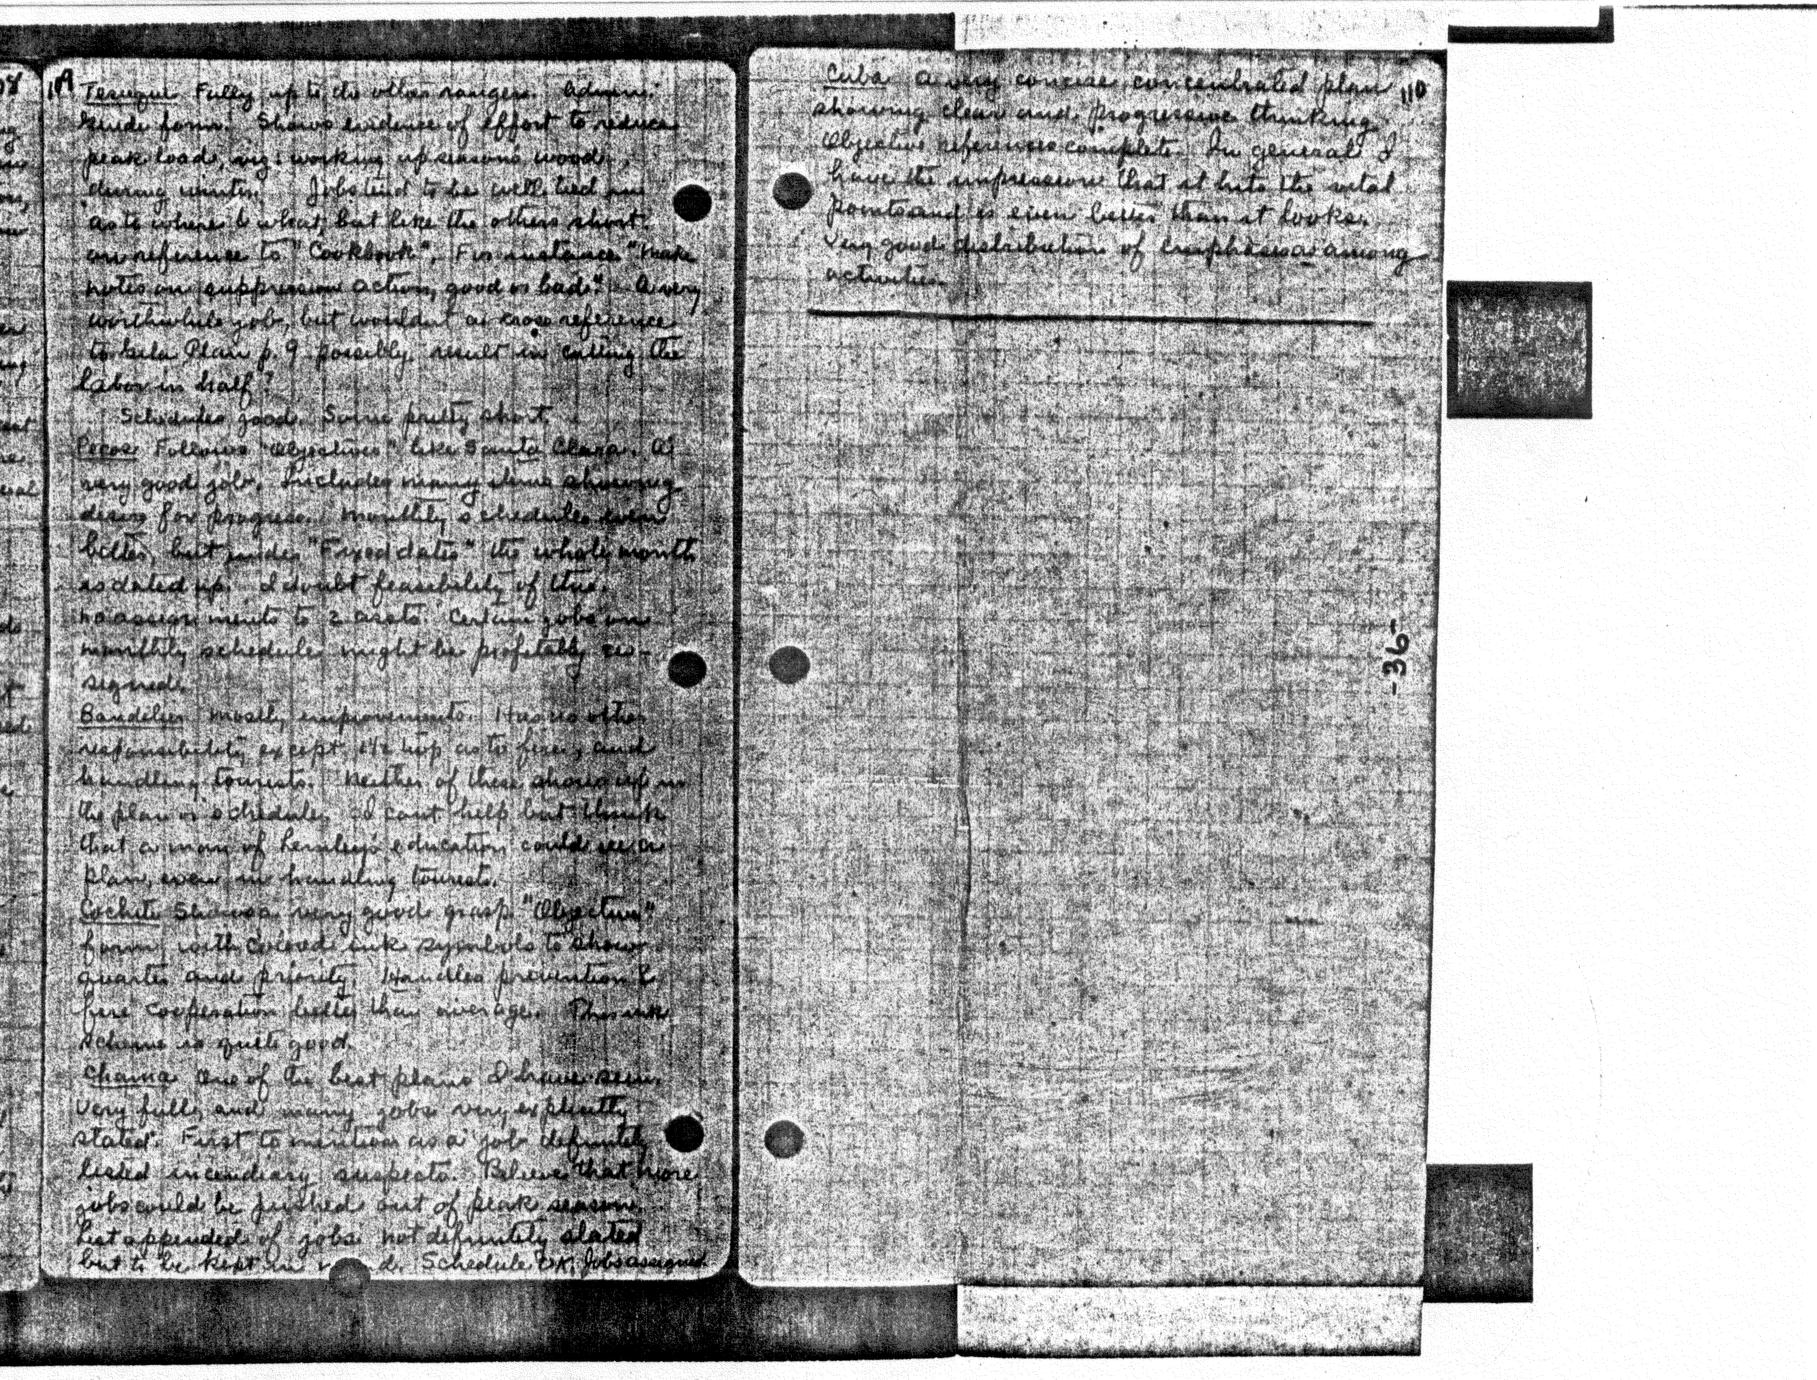 109
Tesuque Fully up to the other rangers. Admin.
Guide form. Shows evidence of effort to reduce
peak load, viz: working up seasons wood
during winter. Jobs tend to be well tied in
as to where & what, but like the others short
on reference to "Cookbook". For instance "Make
notes on suppression action, good or bad." A very
worthwhile job, but wouldnt a cross reference
to Gila Plan p. 9 possibly result in cutting the
labor in half?
Schedules good. Some pretty short.
Pecos Follows "Objectives" like Santa Clara. A
very good job. Includes many items showing
desire for progress. Monthly schedules even
better, but under "Fixed dates" the whole month
is dated up. I doubt feasibility of this.
No assignments to 2 assts. Certain jobs on
monthly schedule might be profitably as-
signed.
Bandelier mostly improvements. Has no other
responsibility except as to fires, and
handling tourists. Neither of these shows up in
the plan or schedule. I cant help but think
that a man of education could see a
plan, even in handling tourists.
Cochiti Shows a very good grasp. "Objective"
form with colored ink symbols to show
quarter and priority. Handles prevention &
fire cooperation better than average. This ink
scheme is quite good.
Chama One of the best plans I have seen.
Very full, and many jobs very explicitly
stated. First to mention as a job definitely
listed incendiary suspects. Believe that more
jobs could be pushed out of peak season.
List appended of jobs not definitely slated
but to be kept in Schedule OK. Jobs assigned.
110
Cuba A very concise, concentrated plan
showing clear and progressive thinking.
Objective references complete. In general I
have the impression that it hits the vital
points and is even better than it looks.
Very good distribution of emphasis among
activities.
-36-